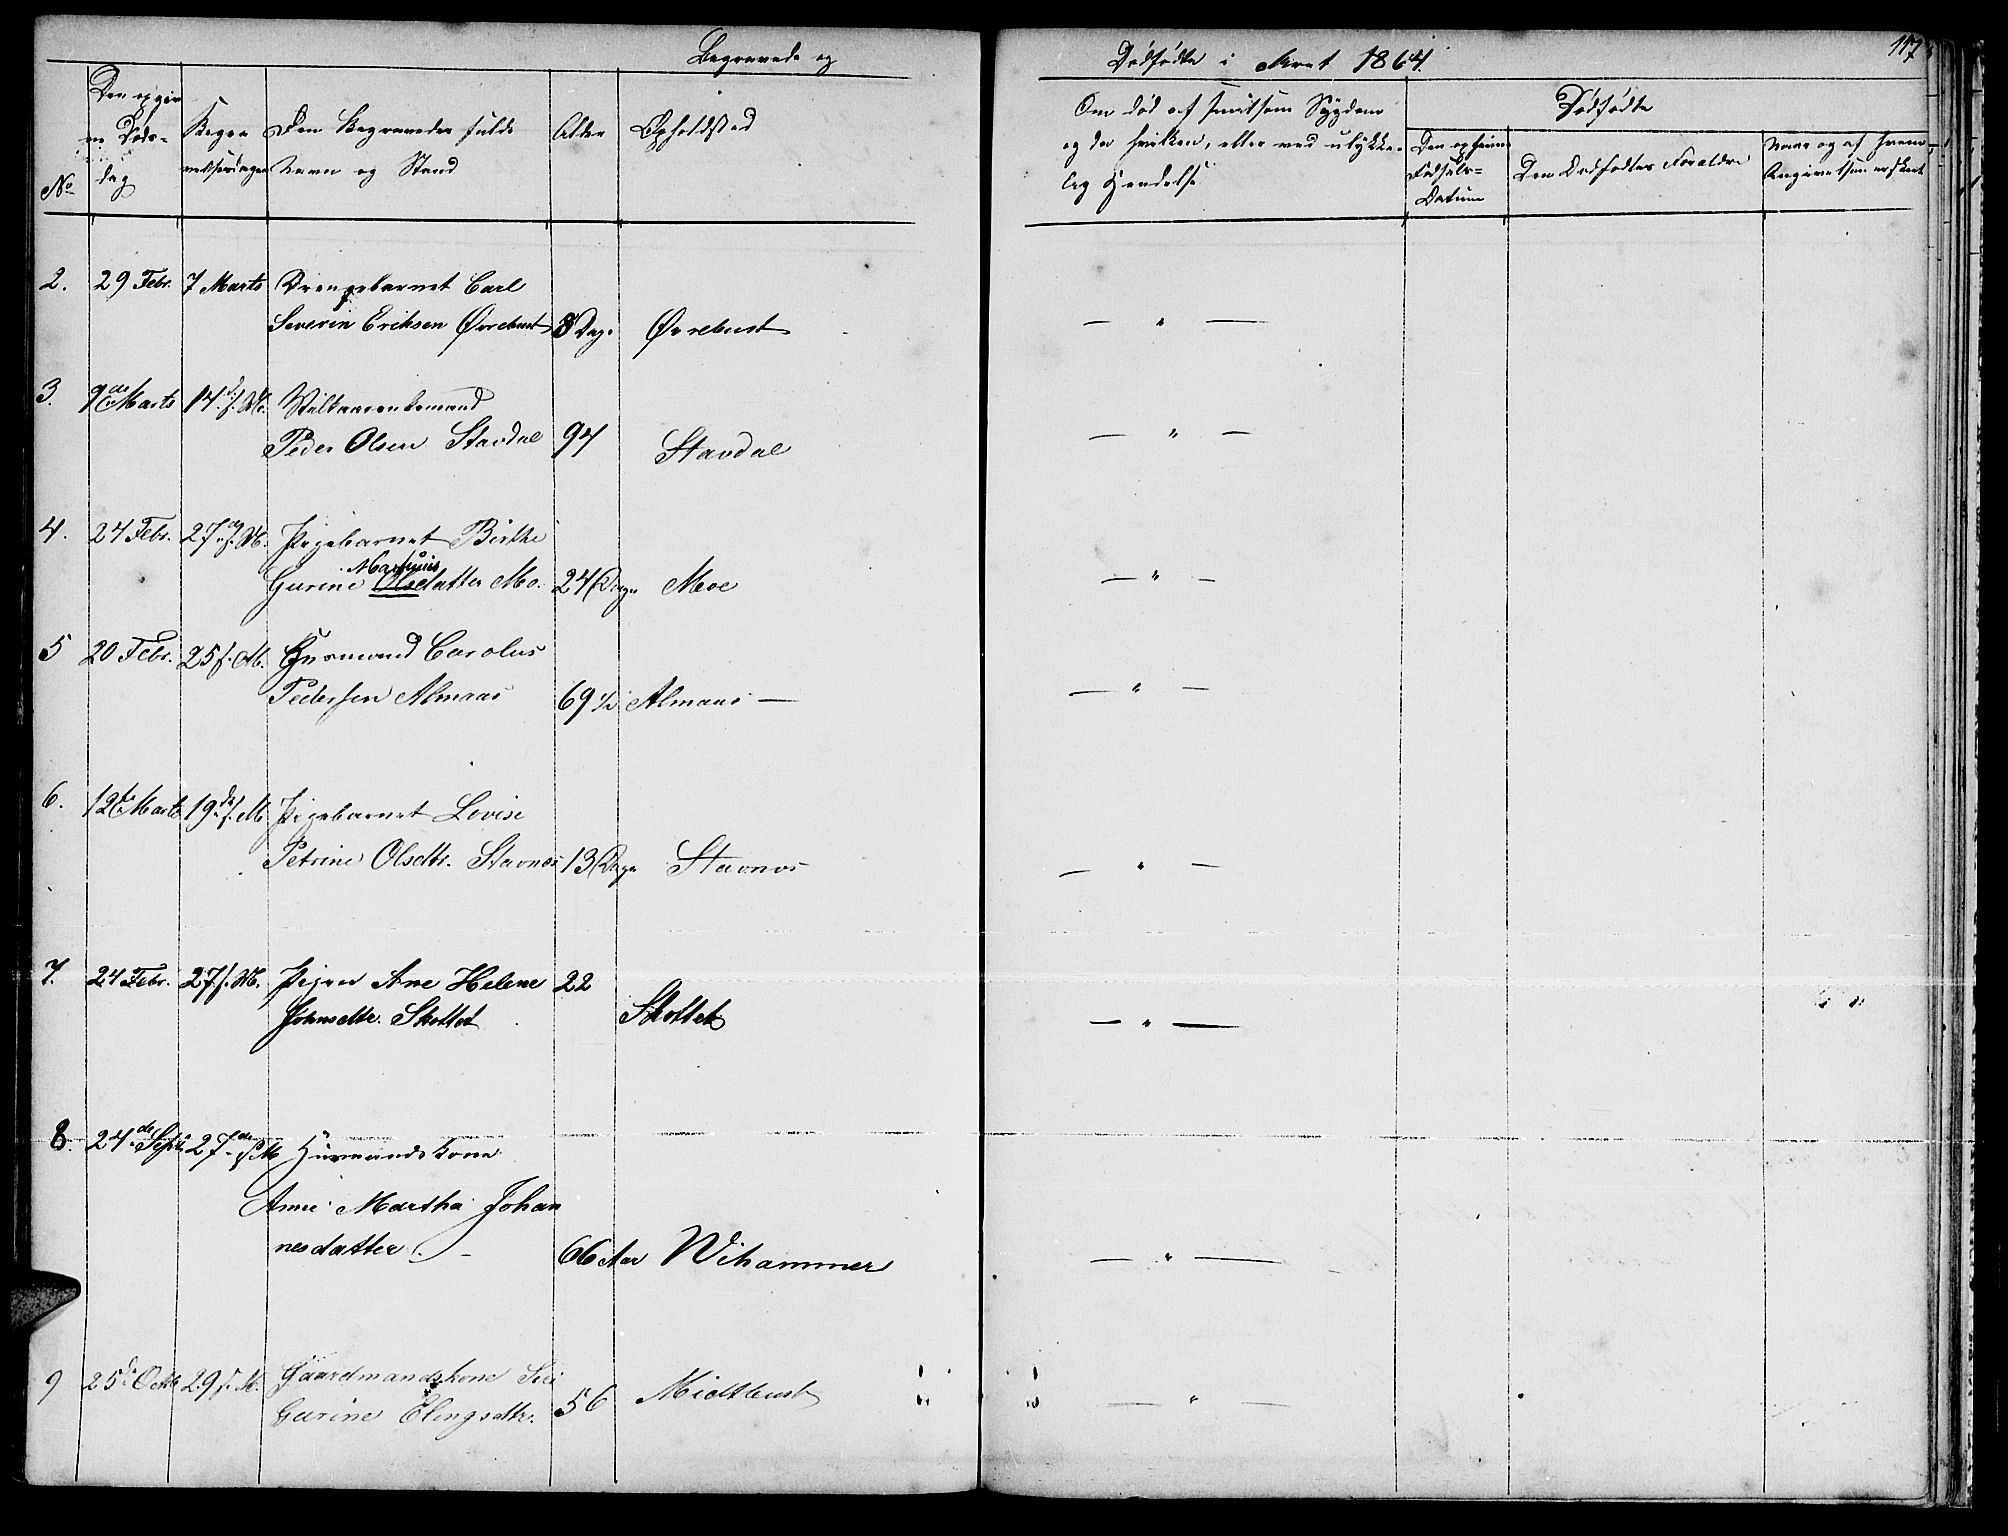 Begravede og
Dødfødte i Aaret 1864.
117
No
Den opgiv
ne Døds-
dag
Begra
velsesdagen
Den Begravedes fulde
Navn og Stand
Alder
Opholdsted
Om død af smitsom Sygdom
og da hvilken, eller ved ulykke-
lig Hendelse
Dødfødte
Fødsels-
Datum
Den Dødfødtes Forældre
Naar og af hvem
2. 29 Febr. 7 Marts Drengebarnet Carl
Severin Eriksen Ørrebust 8 Dag. Ørrebust — " —
3. Marts 14. f. M. Vilkaarenkemand
Peder Olsen Stavdal 94 Stavdal — " —
4. 24 Febr. 27. f. M. Pigebarnet Birthe
Martinus
Gurine Olsdatter Mo. 24 Dage Moe — " —
5 20 Febr. 25 f. M. Huusmand Carolus
Pedersen Almaas 69 1/2 Almaas — — " —
6. 12te Marts 19de f. M. Pigebarnet Lovise
Petrine Olsdtr. Stavnes 13 Dage Stavnes — " —
7. 24 Febr. 27 f. M. Pigen Ane Helene 22
Johnsdtr. Skottet Skottet — " —
8. 24de Septr 27de f M Huusmandskone
Anne Martha Johan
nesdatter. — 66 Aar Wihammer — " —
9 25de Octbr 29 f. M. Gaardmandskone Siri
Gurine Elingsdtr. 56 Midtbust — " —